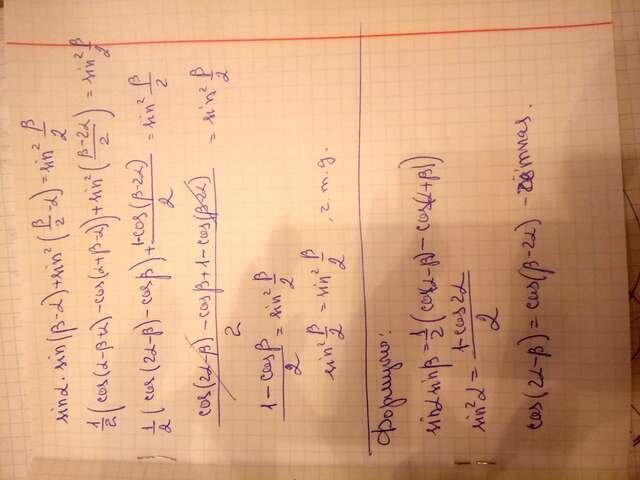 sinα · sin(β-α) + sin²(β/2 - α) = sin² β/2
1/2 (cos(α-β+α) - cos(α+β-α)) + sin²((β-2α)/2) = sin² β/2
1/2 (cos(2α-β) - cosβ) + (1-cos(β-2α))/2 = sin² β/2
(cos(2α-β) - cosβ + 1 - cos(β-2α))/2 = sin² β/2
(1 - cosβ)/2 = sin² β/2
sin² β/2 = sin² β/2 , ч.т.д.
Формулы:
sinα sinβ = 1/2 (cos(α-β) - cos(α+β))
sin²α = (1-cos2α)/2
cos(2α-β) = cos(β-2α) - чётная.